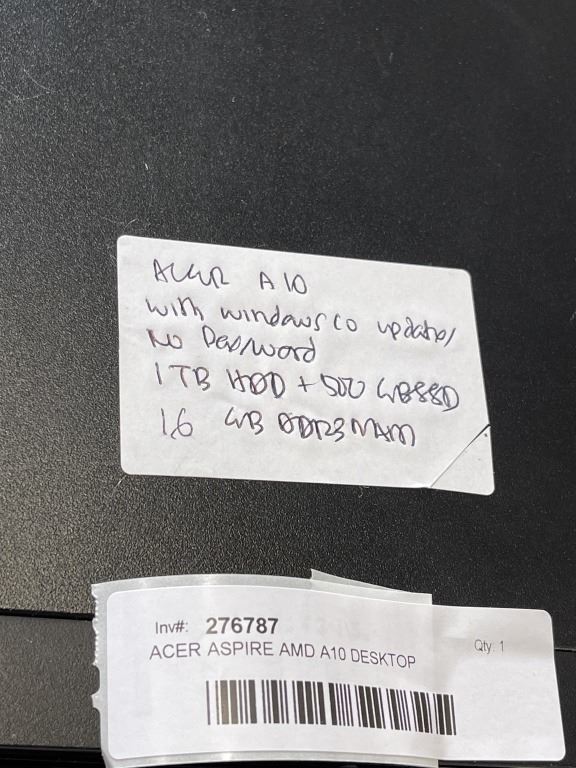 ACER A10
with windows 10 updated/
No Password
1 TB HDD + 500 GB SSD
16 GB DDR3 RAM
Inv#: 276787
Qty: 1
ACER ASPIRE AMD A10 DESKTOP